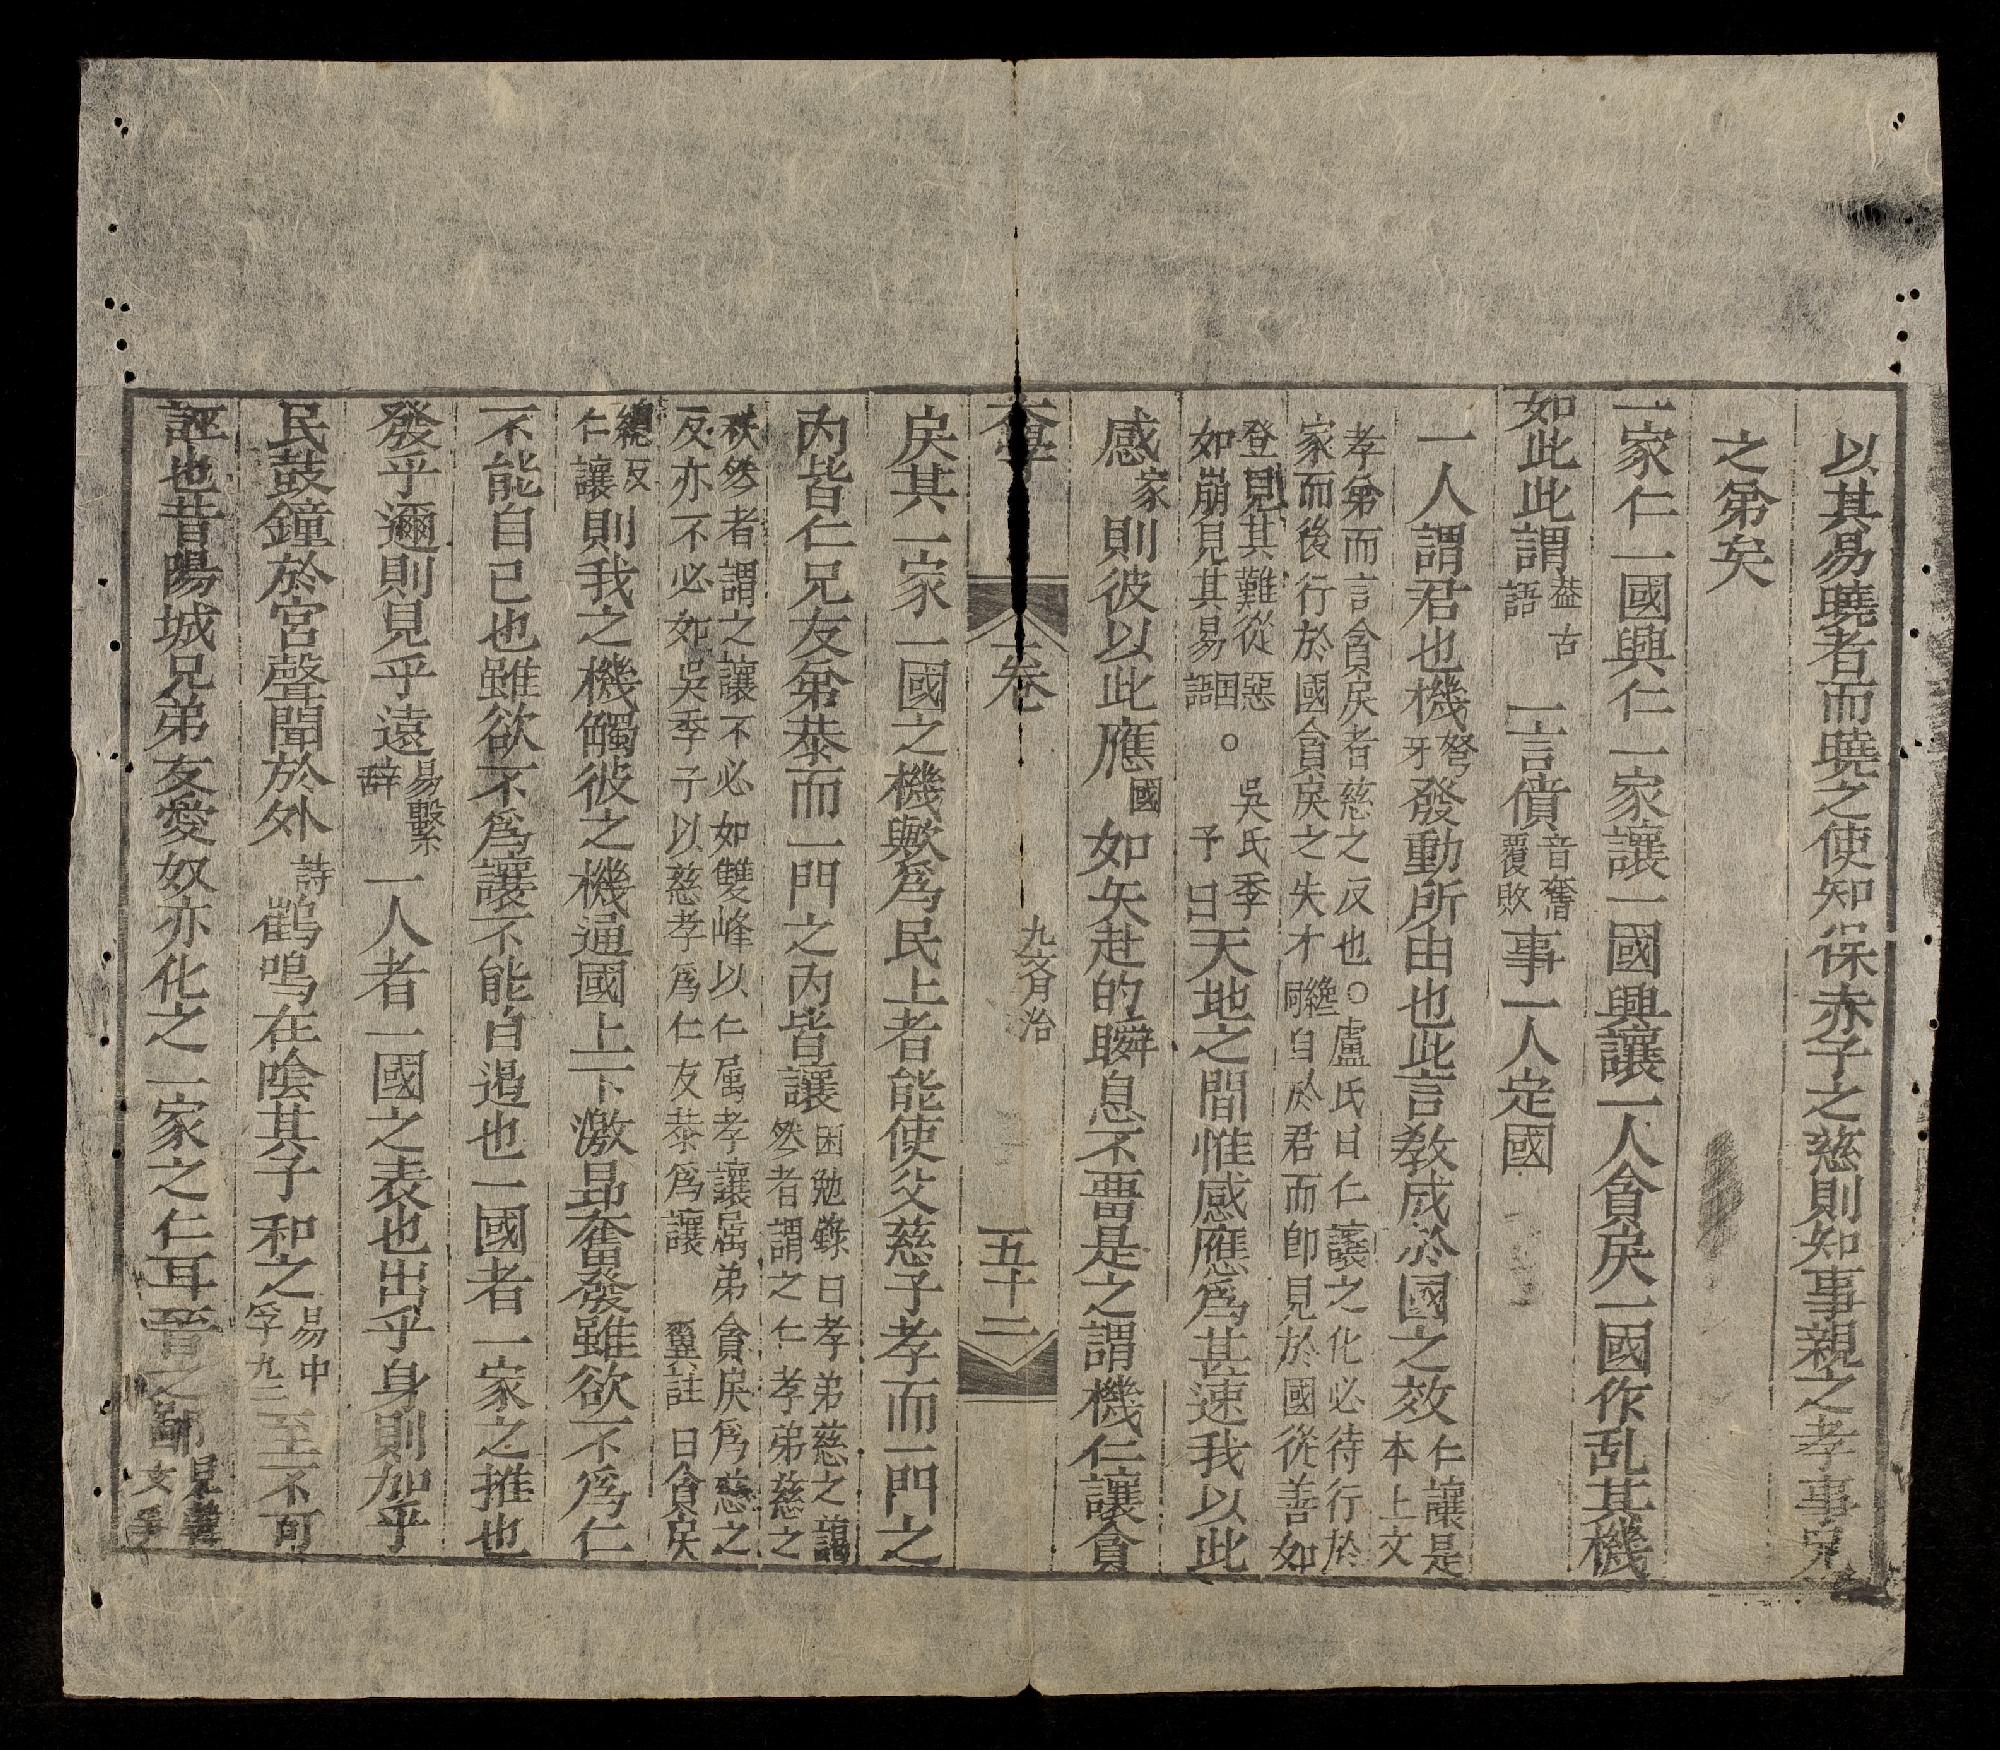 以其易曉者而曉之使知保赤子之慈則知事親之孝事兄
之弟矣
一家仁一國興仁一家讓一國興讓一人貪戾一國作乱其機
如此此謂葢古語一言僨音奮覆敗事一人定國
一人謂君也機弩牙發動所由也此言教成於國之效仁讓是本上文
孝弟而言貪戾者慈之反也○盧氏曰仁讓之化必待行於
家而後行於國貪戾之失才自於君而卽見於國從善如
登見其難從惡
如崩見其易国語○吳氏季子曰天地之間惟感應爲甚速我以此
感家則彼以此應國如矢赴的瞬息不畱是之謂機仁讓貪
大學 一卷 九文月治 五十二
戾其一家一國之機歟爲民上者能使父慈子孝而一門之
內皆仁兄友弟恭而一門之內皆讓困勉錄曰孝弟慈之藹然者謂之仁孝弟慈之
秩然者謂之讓不必如雙峰以仁属孝讓属弟貪戾爲慈之
反亦不必如吳季子以慈孝爲仁友恭爲讓 翼註曰貪戾
總反仁讓則我之機觸彼之機通國上下激昻奮發雖欲不爲仁
不能自已也雖欲不爲讓不能自遏也一國者一家之推也
發乎邇則見乎遠易繫辞一人者一國之表也出乎身則加乎
民鼓鐘於宮聲聞於外詩鶴鳴在陰其子和之易中孚九二至不可
誣也昔陽城兄弟友愛奴亦化之一家之仁耳晉之鄙見韓文爭